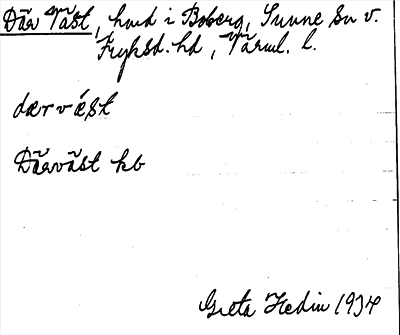 Där Väst, hmd i Boberg, Sunne sn v.
Fryksd. hd, Värml. l.
dærvæst
Därväst kb
Greta Hedin 1934